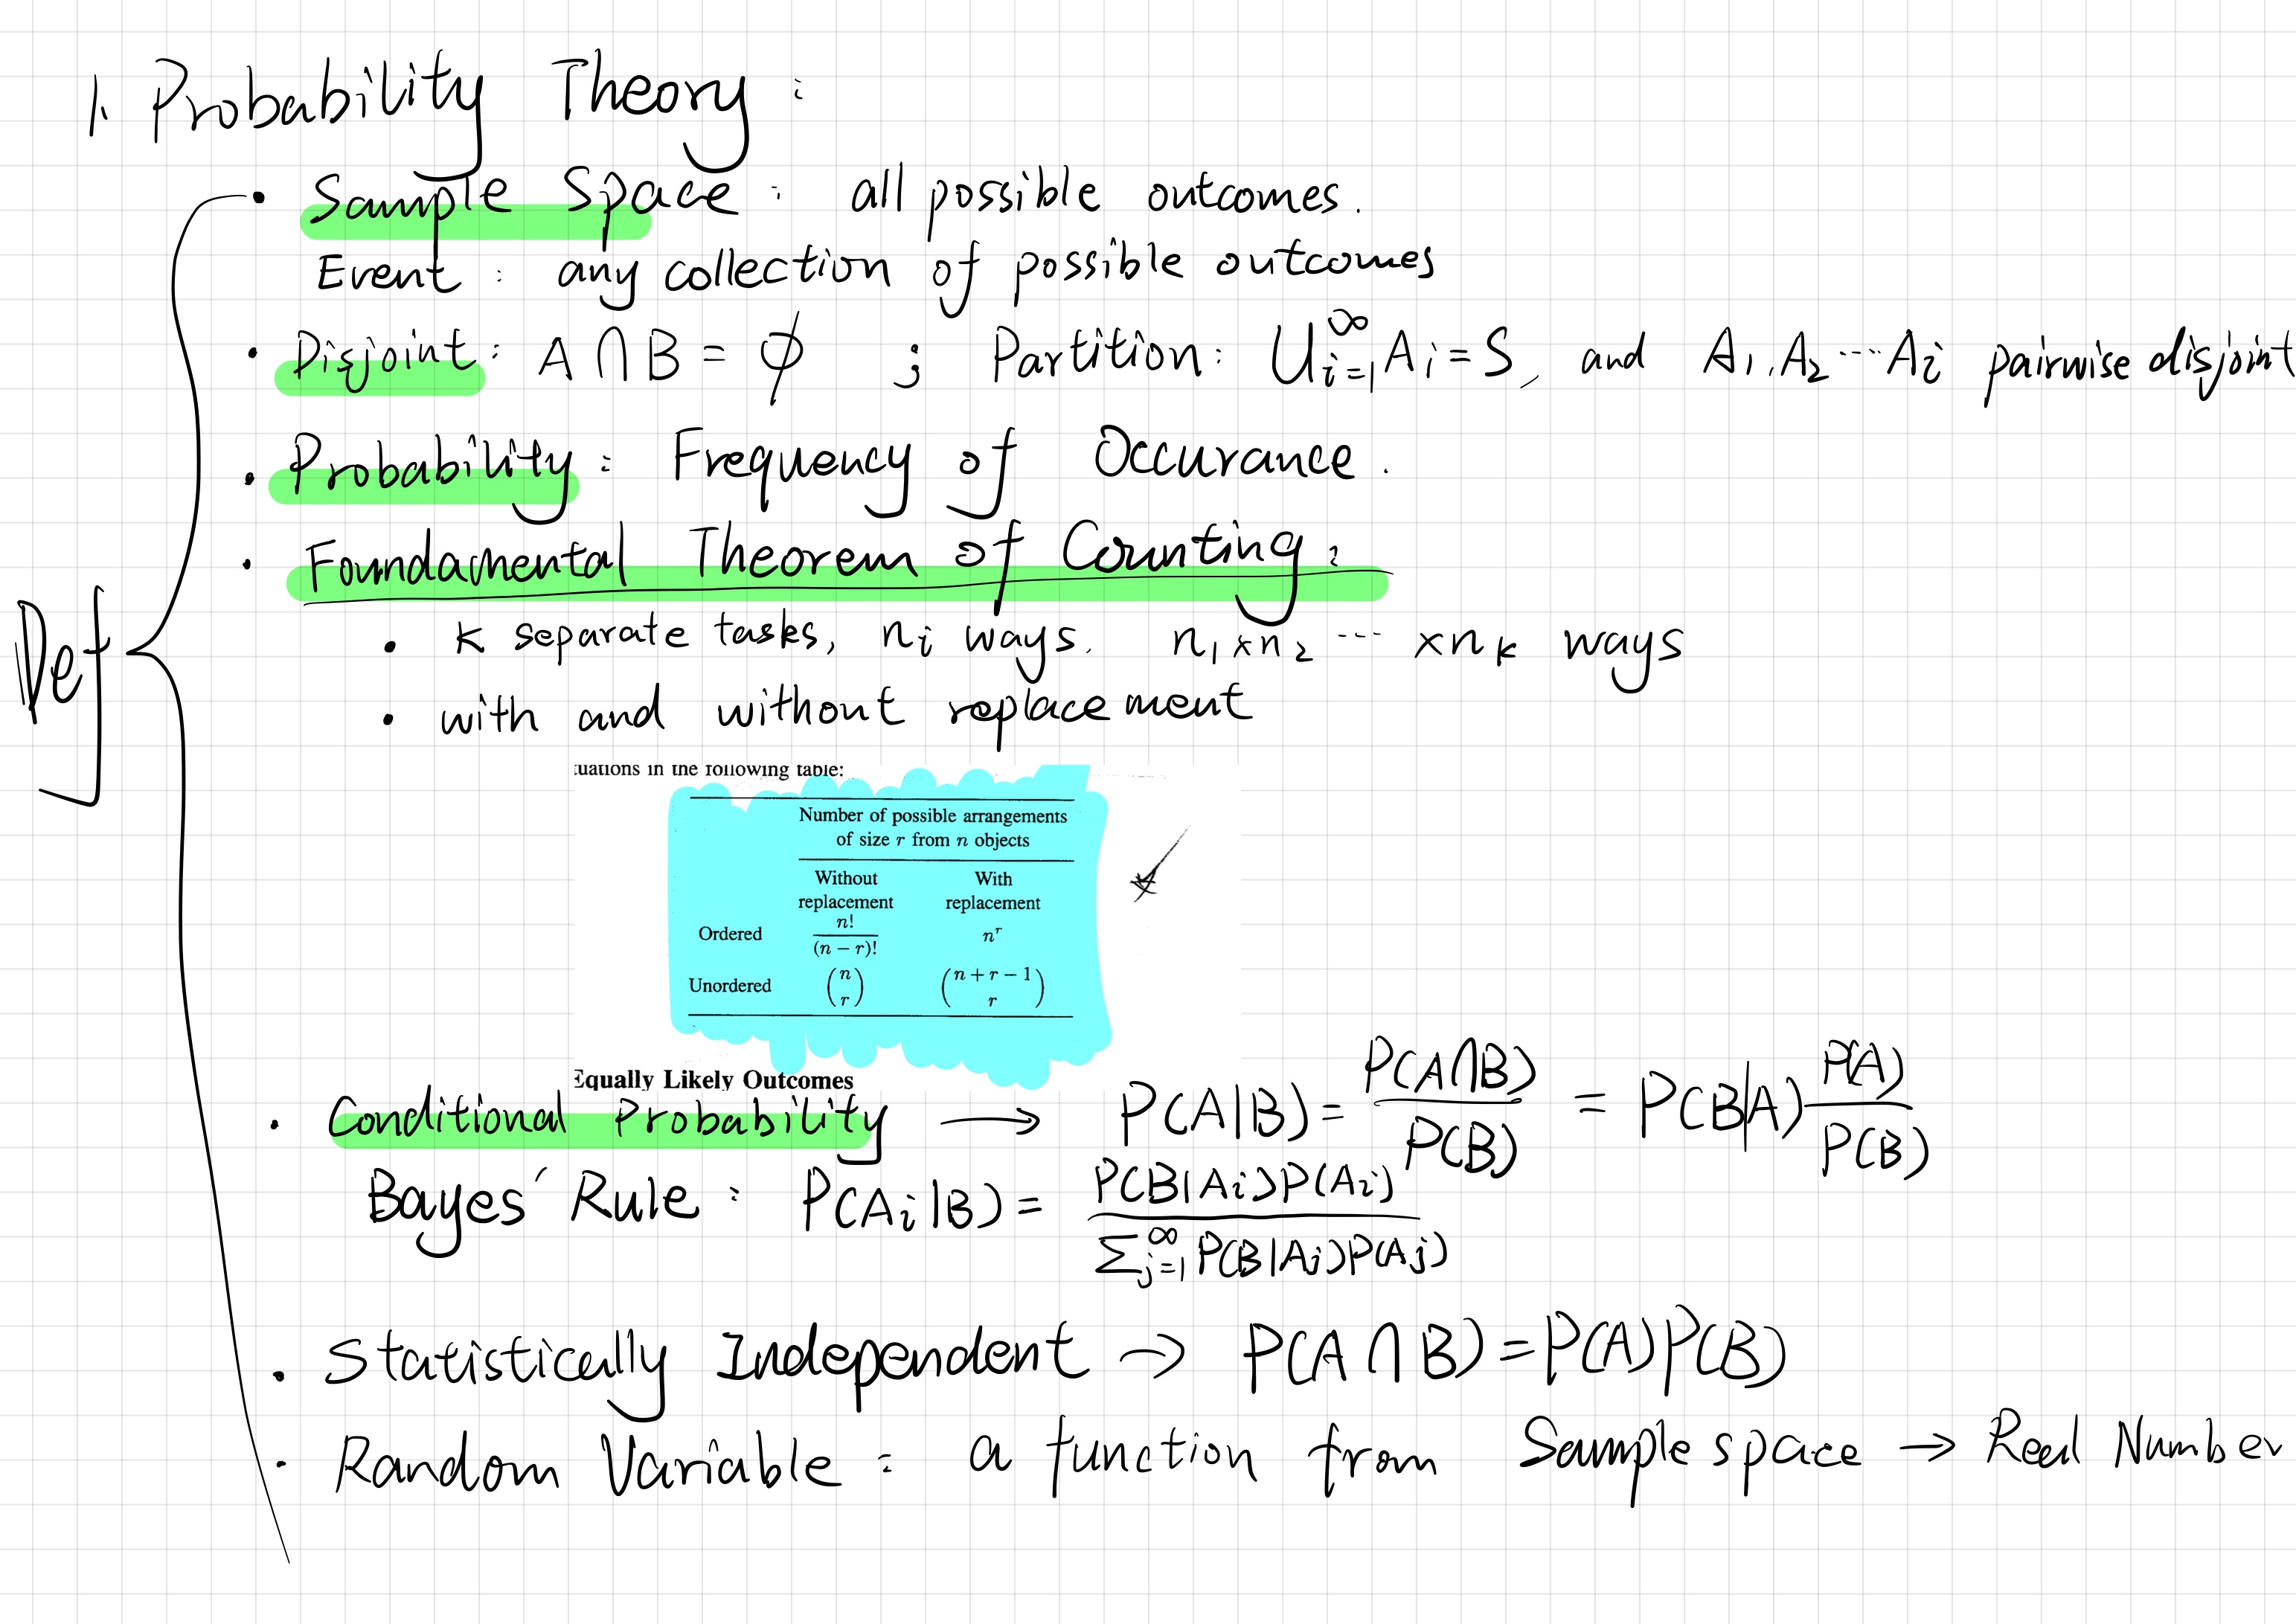 1. Probability Theory :
• Sample Space : all possible outcomes.
Event : any collection of possible outcomes
• Disjoint : A ∩ B = ϕ ; Partition : ∪_{i=1}^∞ A_i = S, and A_1, A_2 ... A_i pairwise disjoint
• Probability : Frequency of Occurance.
• Foundamental Theorem of Counting :
Def
• K separate tasks, n_i ways. n_1 × n_2 ... × n_k ways
• with and without replacement
tuations in the following table:
Number of possible arrangements
of size r from n objects
Without With
replacement replacement
Ordered n!/(n − r)! n^r
Unordered (n r) (n + r − 1 r)
Equally Likely Outcomes
• Conditional Probability → P(A|B) = P(A∩B)/P(B) = P(B|A) P(A)/P(B)
Bayes' Rule : P(A_i|B) = P(B|A_i)P(A_i) / ∑_{j=1}^∞ P(B|A_j)P(A_j)
• Statistically Independent → P(A ∩ B) = P(A)P(B)
• Random Variable : a function from Sample space → Real Number